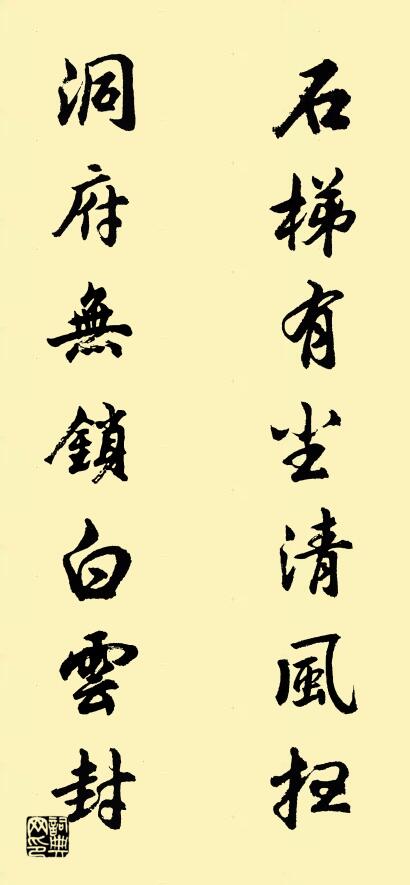 石梯有尘清風扫
洞府無鎖白雲封
詞典
网印